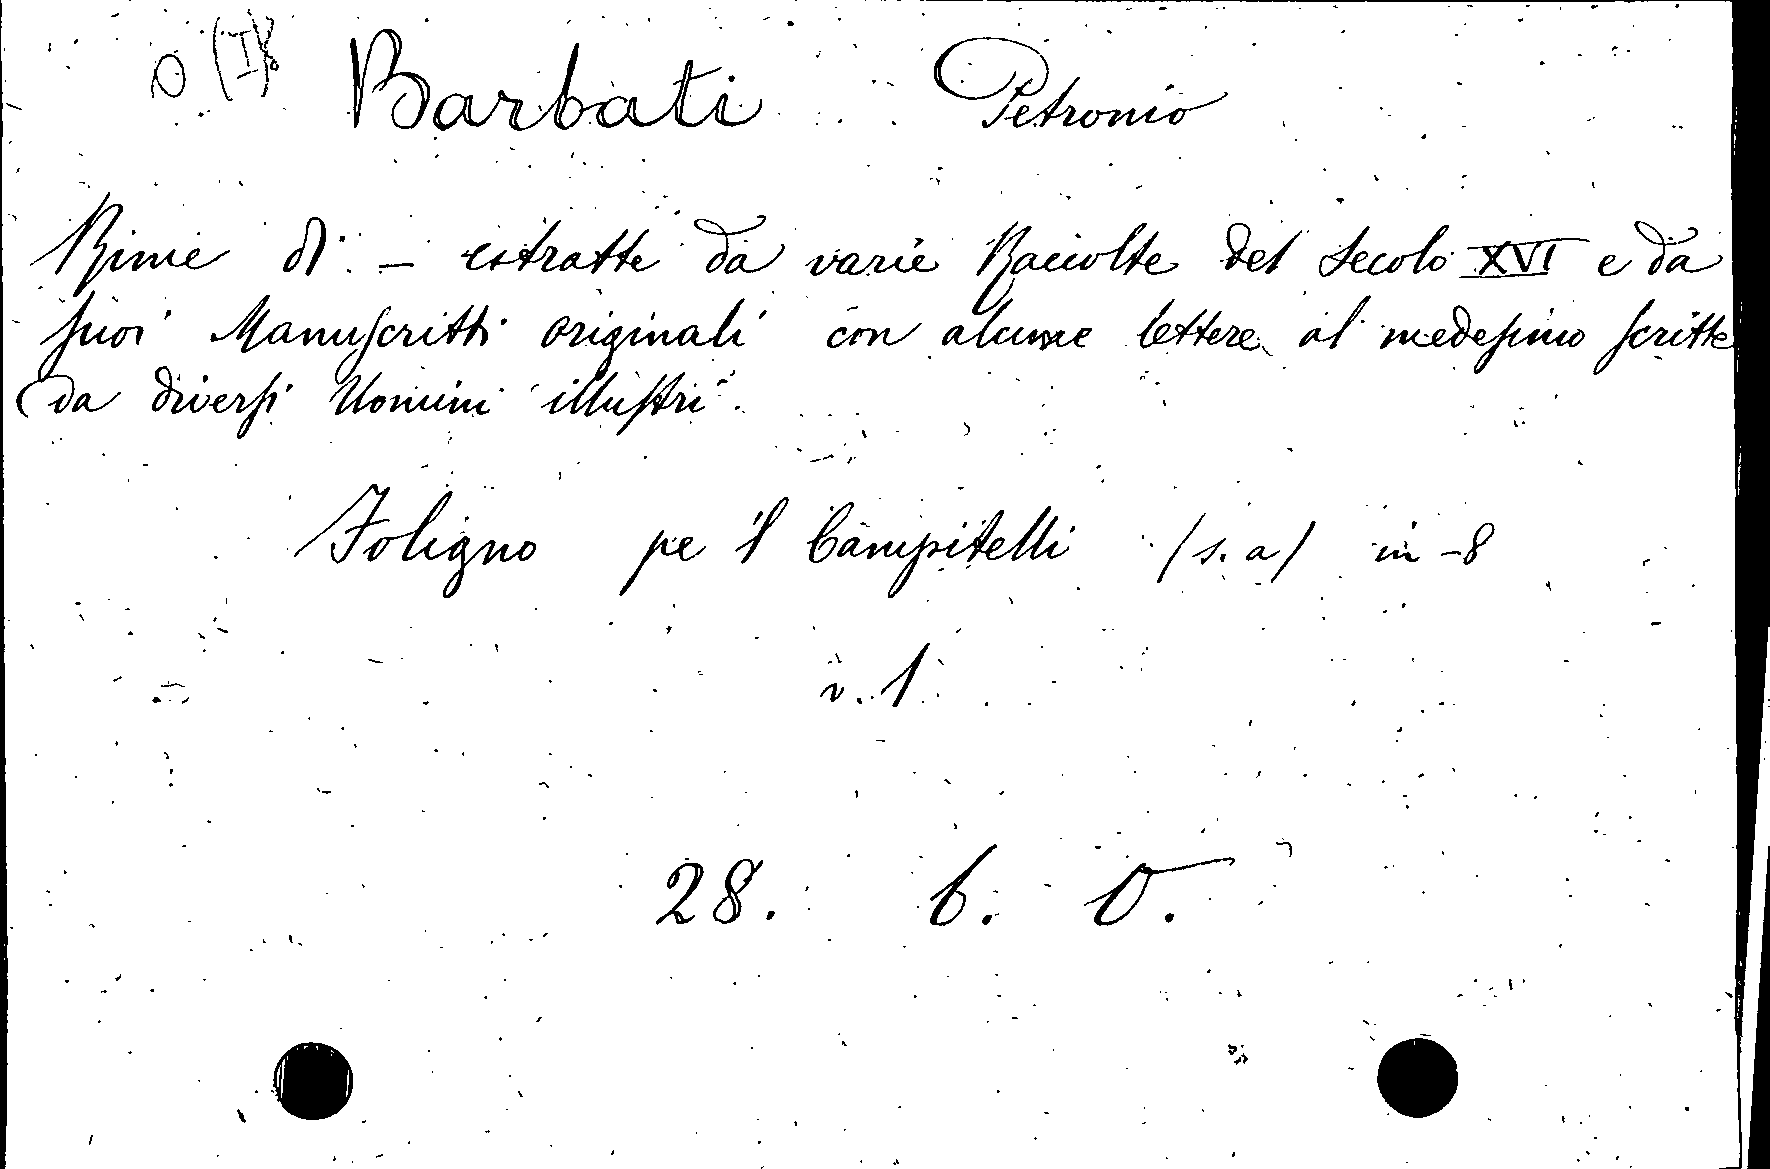 O (I)8
Barbati Petronio
Rime di - estratte da varie Raccolte del secolo XVI e da
suoi Manuscritti originali con alcune lettere al medesimo scritte
da diversi Uomini illustri.
Foligno pe 'l Campitelli (s. a) in -8
v. 1
28. 6. D.